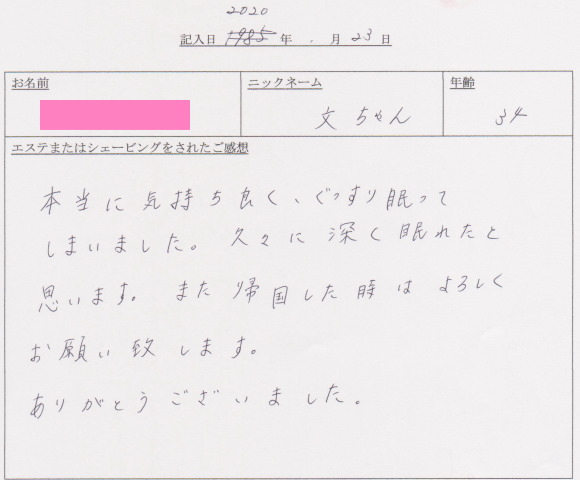 2020
記入日 1985 年 . 月 23 日
お名前 ニックネーム 年齢
文ちゃん 34
エステまたはシェービングをされたご感想
本当に気持ち良く、ぐっすり眠って
しまいました。久々に深く眠れたと
思います。また帰国した時はよろしく
お願い致します。
ありがとうございました。